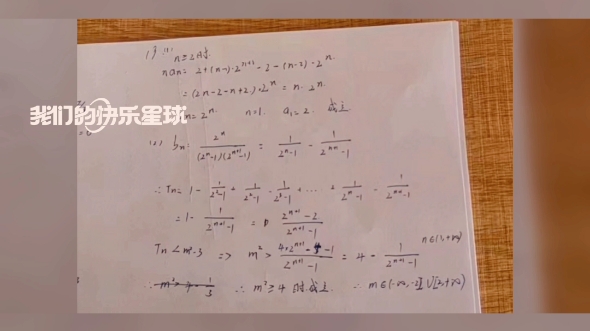 (1)
n≥2时
nan= 2+(n-1)·2^{n+1}-2-(n-2)·2^n
=(2n-2-n+2)·2^n = n·2^n
an=2^n n=1. a1=2. 成立
我们的快乐星球
(2) bn= 2^n/((2^n-1)(2^{n+1}-1)) = 1/(2^n-1) - 1/(2^{n+1}-1)
∴Tn= 1- 1/(2^2-1) + 1/(2^2-1) - 1/(2^3-1) + ··· + 1/(2^n-1) - 1/(2^{n+1}-1)
=1- 1/(2^{n+1}-1) = (2^{n+1}-2)/(2^{n+1}-1)
Tn<m²-3 => m²> (4·2^{n+1}-4-1)/(2^{n+1}-1) = 4- 1/(2^{n+1}-1) n∈[1,+∞)
∴m²>4-1/3 ∴ m²≥4 时成立 ∴ m∈(-∞,-2]∪[2,+∞)